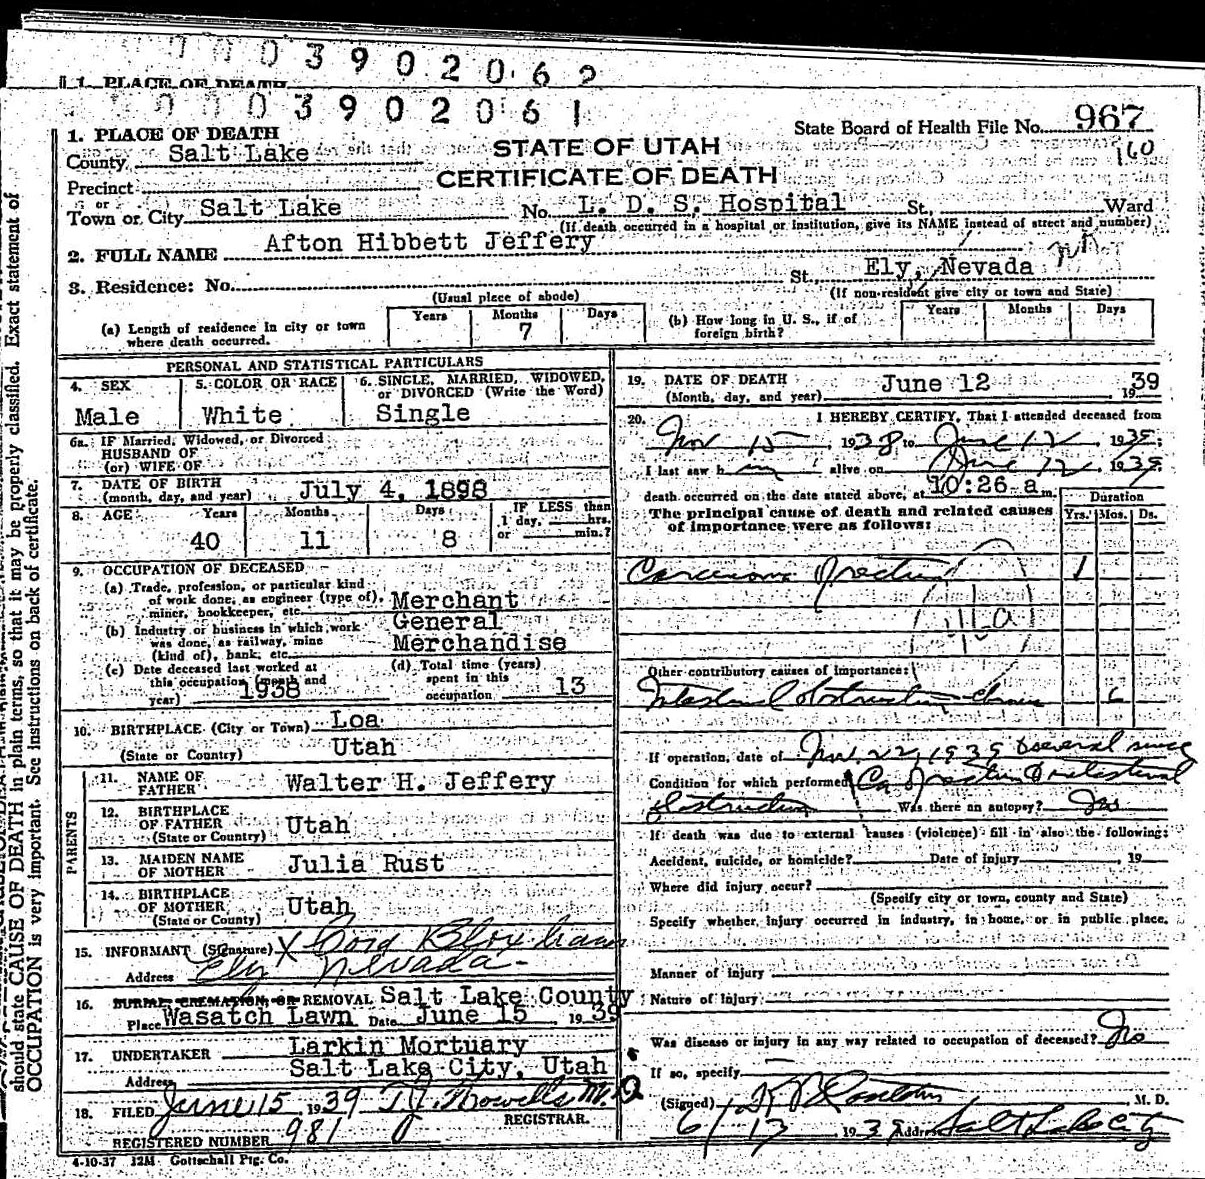 0 0 0 3 9 0 2 0 6 2
1. PLACE OF DEATH
0 0 0 3 9 0 2 0 6 1
State Board of Health File No. 967
160
1. PLACE OF DEATH
County Salt Lake
STATE OF UTAH
CERTIFICATE OF DEATH
Precinct
or
Town or City Salt Lake No. L. D. S. Hospital St., Ward
(If death occurred in a hospital or institution, give its NAME instead of street and number)
2. FULL NAME Afton Hibbett Jeffery
3. Residence: No. St., Ely, Nevada
(Usual place of abode) (If non-resident give city or town and State)
(a) Length of residence in city or town where death occurred. Years Months 7 Days
(b) How long in U. S., if of foreign birth? Years Months Days
PERSONAL AND STATISTICAL PARTICULARS
4. SEX 5. COLOR OR RACE 6. SINGLE, MARRIED, WIDOWED, or DIVORCED (Write the Word)
Male White Single
6a. IF Married, Widowed, or Divorced
HUSBAND OF
(or) WIFE OF
7. DATE OF BIRTH
(month, day, and year) July 4, 1898
8. AGE Years Months Days IF LESS than
1 day, hrs.
or min.?
40 11 8
9. OCCUPATION OF DECEASED
(a) Trade, profession, or particular kind
of work done, as engineer (type of),
miner, bookkeeper, etc. Merchant
(b) Industry or business in which work
was done, as railway, mine
(kind of), bank, etc. General Merchandise
(c) Date deceased last worked at
this occupation (month and
year) 1938
(d) Total time (years)
spent in this
occupation 13
10. BIRTHPLACE (City or Town) Loa
(State or Country) Utah
PARENTS
11. NAME OF
FATHER Walter H. Jeffery
12. BIRTHPLACE
OF FATHER
(State or Country) Utah
13. MAIDEN NAME
OF MOTHER Julia Rust
14. BIRTHPLACE
OF MOTHER
(State or County) Utah
15. INFORMANT (Signature) X Cora Bloxham
Address Ely Nevada
16. BURIAL, CREMATION, OR REMOVAL Salt Lake County
Place Wasatch Lawn Date June 15, 1939
17. UNDERTAKER Larkin Mortuary
Address Salt Lake City, Utah
18. FILED June 15 1939 T. J. Howells M. D.
REGISTRAR.
REGISTERED NUMBER 981
4-10-37 12M Gottschall Ptg. Co.
19. DATE OF DEATH
(Month, day, and year) June 12 1939
20. I HEREBY CERTIFY, That I attended deceased from
Nov 15, 1938 to June 12, 1939;
I last saw h im alive on June 12, 1939,
death occurred on the date stated above, at 10:26 a m.
The principal cause of death and related causes
of importance were as follows:
Duration
Yrs. Mos. Ds.
Carcinoma of rectum 1
46a
Other contributory causes of importance:
Intestinal obstruction - chronic 6
If operation, date of Nov. 22, 1939 & several since
Condition for which performed Ca of rectum & intestinal
obstruction Was there an autopsy? Yes
If death was due to external causes (violence) fill in also the following:
Accident, suicide, or homicide? Date of injury , 19
Where did injury occur?
(Specify city or town, county and State)
Specify whether injury occurred in industry, in home, or in public place.
Manner of injury
Nature of injury
Was disease or injury in any way related to occupation of deceased? No
If so, specify
(Signed) M. D.
6/13 1939 Address Salt Lake City
should state CAUSE OF DEATH in plain terms, so that it may be properly classified. Exact statement of
OCCUPATION is very important. See instructions on back of certificate.